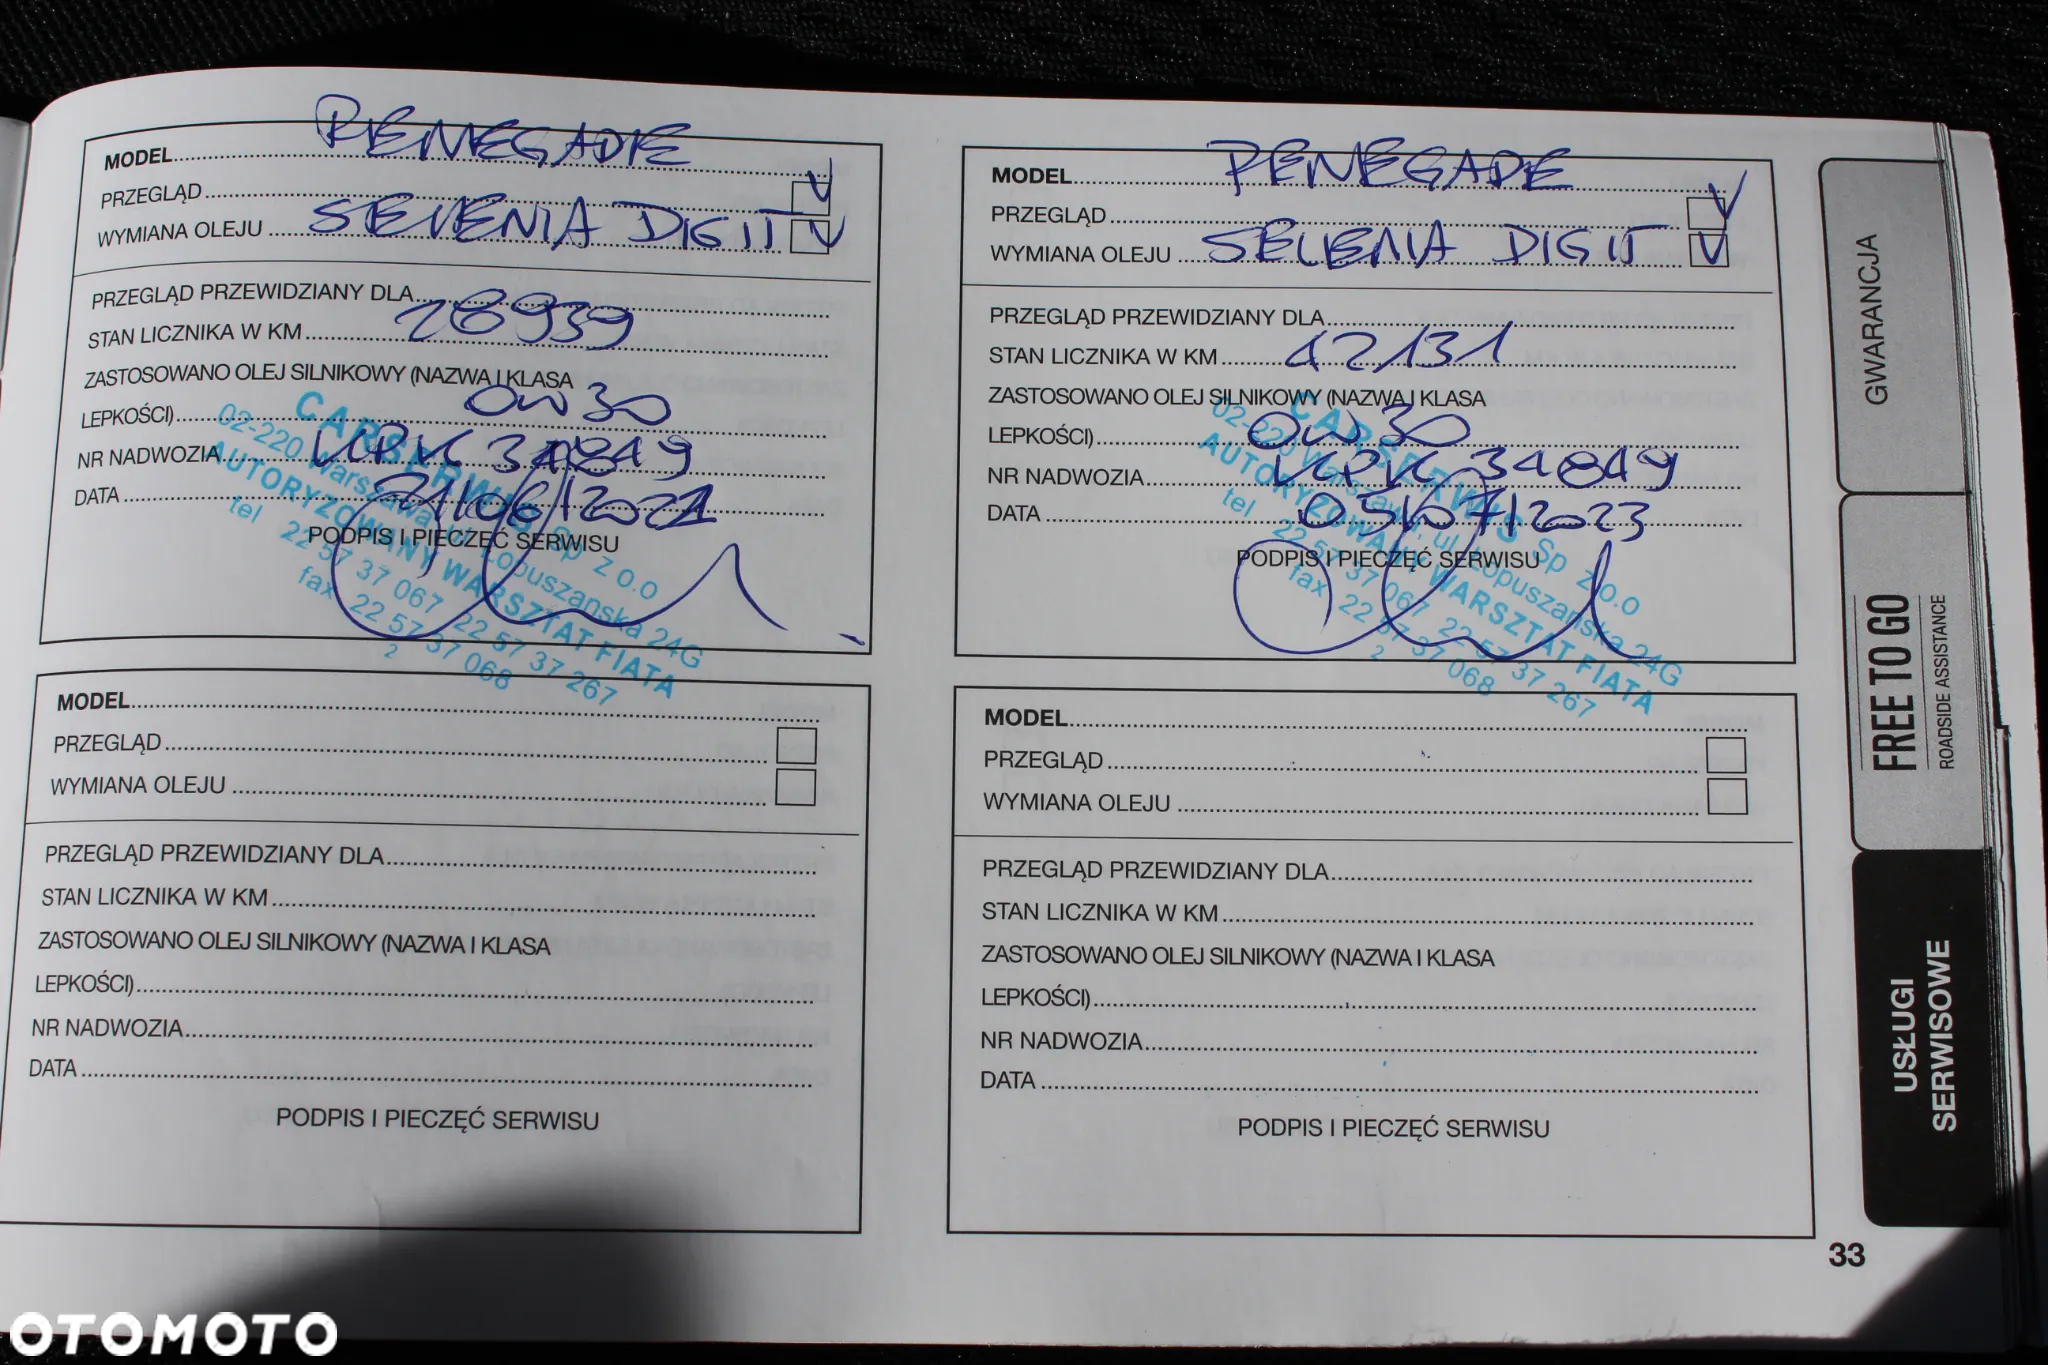 MODEL RENEGADE
PRZEGLĄD V
WYMIANA OLEJU SELENIA DIGIT V
PRZEGLĄD PRZEWIDZIANY DLA
STAN LICZNIKA W KM 28939
ZASTOSOWANO OLEJ SILNIKOWY (NAZWA I KLASA
LEPKOŚCI) 0W30
NR NADWOZIA 34849
DATA 21/06/2021
PODPIS I PIECZĘĆ SERWISU
CARSERWIS Sp z o.o
02-220 Warszawa, ul. Łopuszańska 24G
AUTORYZOWANY WARSZTAT FIATA
tel 22 57 37 067 22 57 37 267
fax 22 57 37 068
2
MODEL RENEGADE
PRZEGLĄD V
WYMIANA OLEJU SELENIA DIGIT V
PRZEGLĄD PRZEWIDZIANY DLA
STAN LICZNIKA W KM 42131
ZASTOSOWANO OLEJ SILNIKOWY (NAZWA I KLASA
LEPKOŚCI) 0W30
NR NADWOZIA 34849
DATA 05/07/2023
PODPIS I PIECZĘĆ SERWISU
CARSERWIS Sp z o.o
02-220 Warszawa, ul. Łopuszańska 24G
AUTORYZOWANY WARSZTAT FIATA
tel 22 57 37 067 22 57 37 267
fax 22 57 37 068
2
MODEL
PRZEGLĄD
WYMIANA OLEJU
PRZEGLĄD PRZEWIDZIANY DLA
STAN LICZNIKA W KM
ZASTOSOWANO OLEJ SILNIKOWY (NAZWA I KLASA
LEPKOŚCI)
NR NADWOZIA
DATA
PODPIS I PIECZĘĆ SERWISU
MODEL
PRZEGLĄD
WYMIANA OLEJU
PRZEGLĄD PRZEWIDZIANY DLA
STAN LICZNIKA W KM
ZASTOSOWANO OLEJ SILNIKOWY (NAZWA I KLASA
LEPKOŚCI)
NR NADWOZIA
DATA
PODPIS I PIECZĘĆ SERWISU
GWARANCJA
FREE TO GO
ROADSIDE ASSISTANCE
USŁUGI
SERWISOWE
33
OTOMOTO